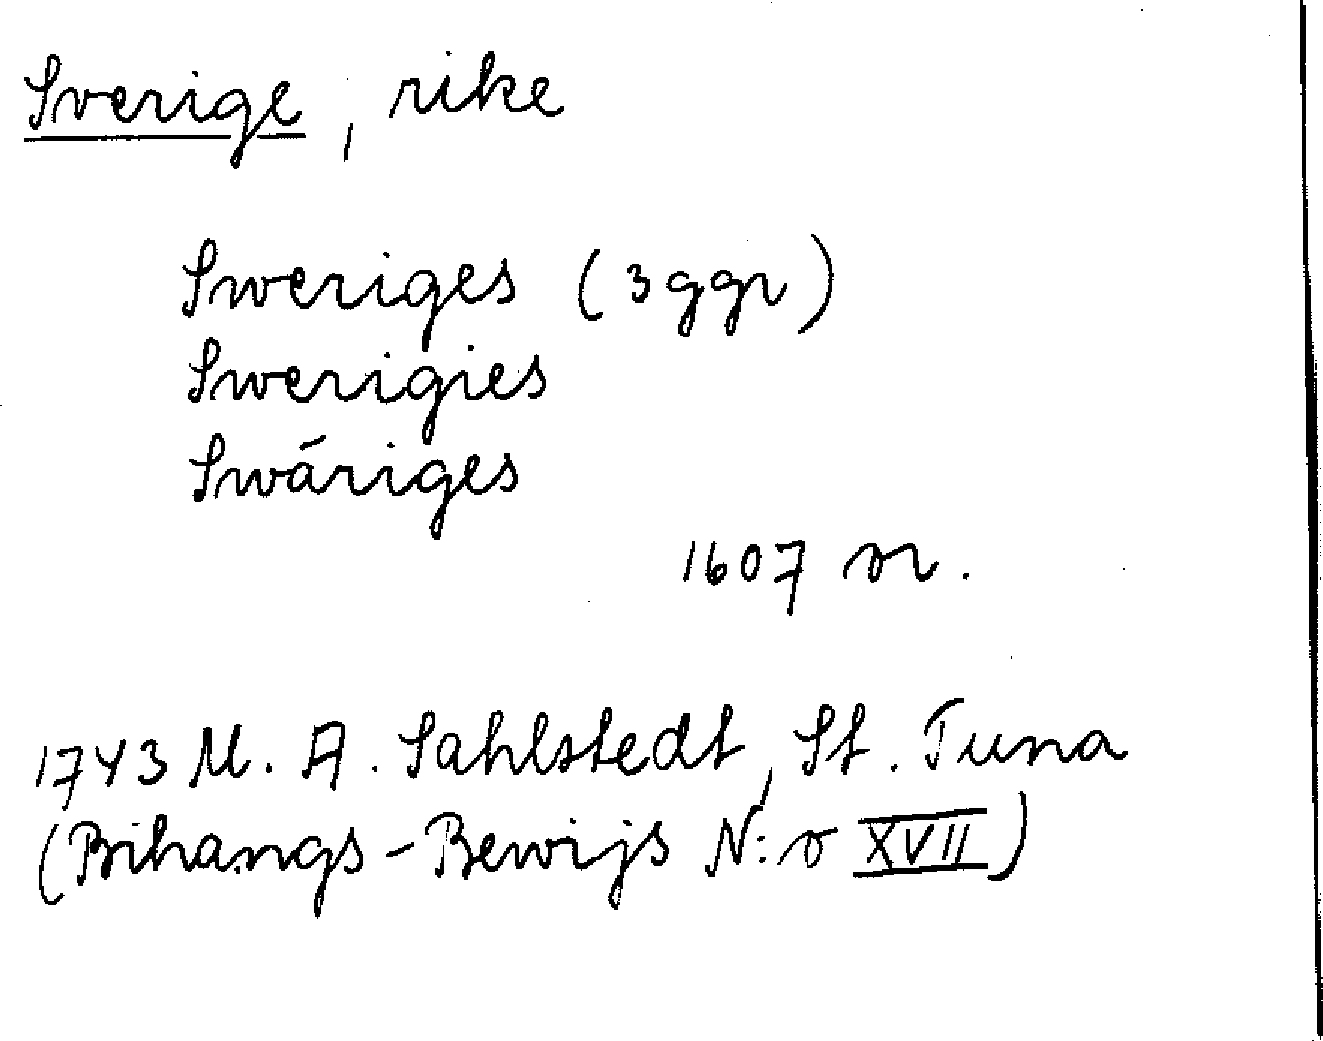 Sverige, rike
Sweriges (3 ggr)
Swerigies
Swäriges
1607 or.
1743 M. A. Sahlstedt, St. Tuna
(Bihangs-Bewijs N:o XVII)